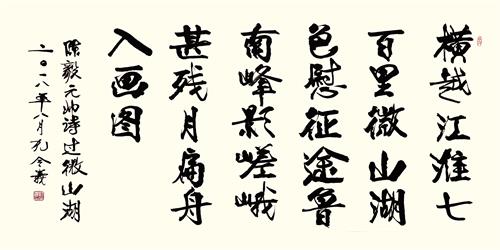 横越江淮七
百里微山湖
色慰征途鲁
南峰影嵯峨
甚残月扁舟
入画图
陈毅元帅诗过微山湖
二〇一八年八月孔令義